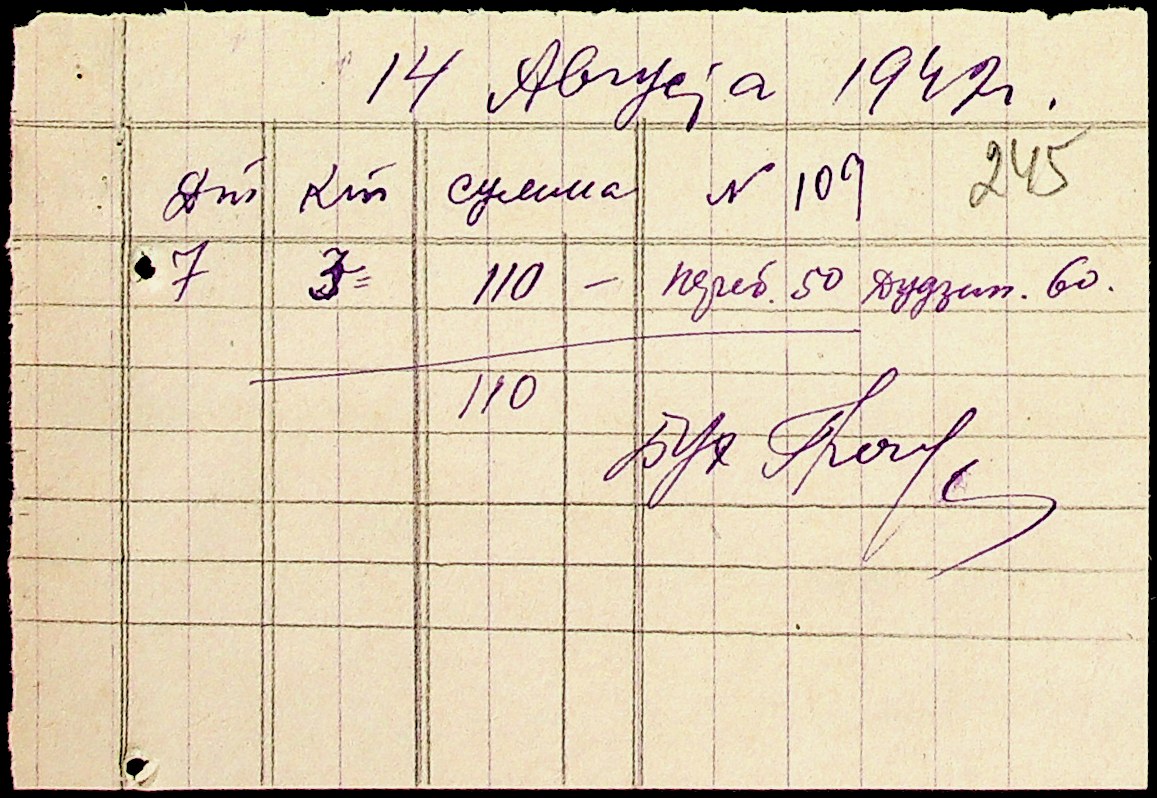 14 Августа 1942г.
245
Дт Кт сумма N 109
7 3= 110 — Переб. 50 Дудзин. 60.
110
Бух